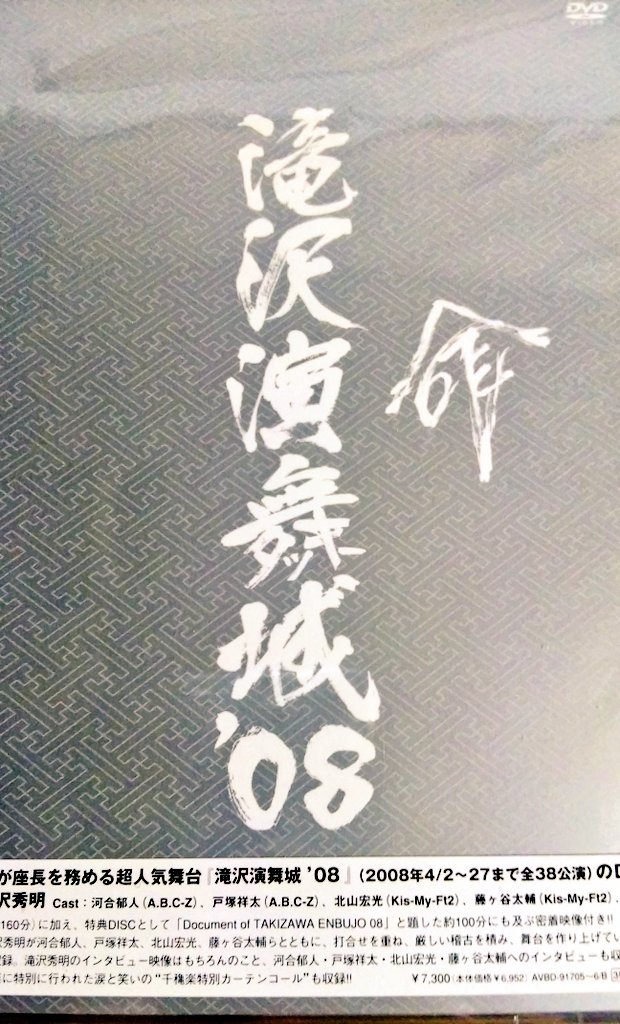 DVD
VIDEO
滝沢演舞城
'08
命
が座長を務める超人気舞台『滝沢演舞城 '08 』(2008年4/2〜27まで全38公演)のD
沢秀明 Cast：河合郁人 (A.B.C-Z) 、戸塚祥太 (A.B.C-Z) 、北山宏光 (Kis-My-Ft2) 、藤ヶ谷太輔 (Kis-My-Ft2) 、
160分) に加え、特典DISCとして「Document of TAKIZAWA ENBUJO 08」と題した約100分にも及ぶ密着映像付き!!
沢秀明が河合郁人、戸塚祥太、北山宏光、藤ヶ谷太輔らとともに、打合せを重ね、厳しい稽古を積み、舞台を作り上げてい
録。滝沢秀明のインタビュー映像はもちろんのこと、河合郁人・戸塚祥太・北山宏光・藤ヶ谷太輔へのインタビューも収
に特別に行われた涙と笑いの"千穐楽特別カーテンコール"も収録!!
¥7,300 (本体価格¥6,952) AVBD-91705〜6B